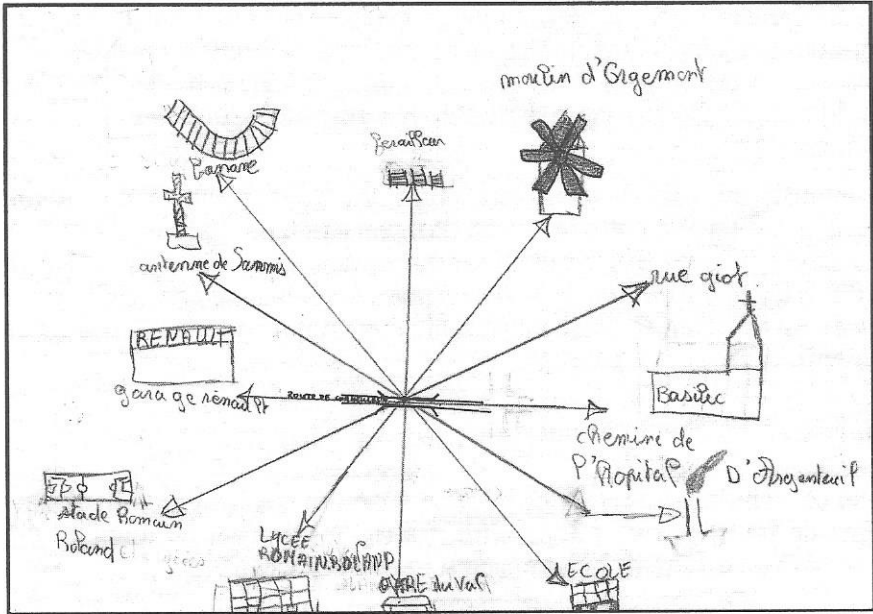 moulin d'Orgemont
ferailleur
banane
antenne de Sannois
rue giot
RENAULT
garage renault
ROUTE DE
Basilic
cheminé de
l'hopital D'Argenteuil
stade Romain
Roland
LYCEE
ROMAIN ROLAND
GARE du Val
ECOLE